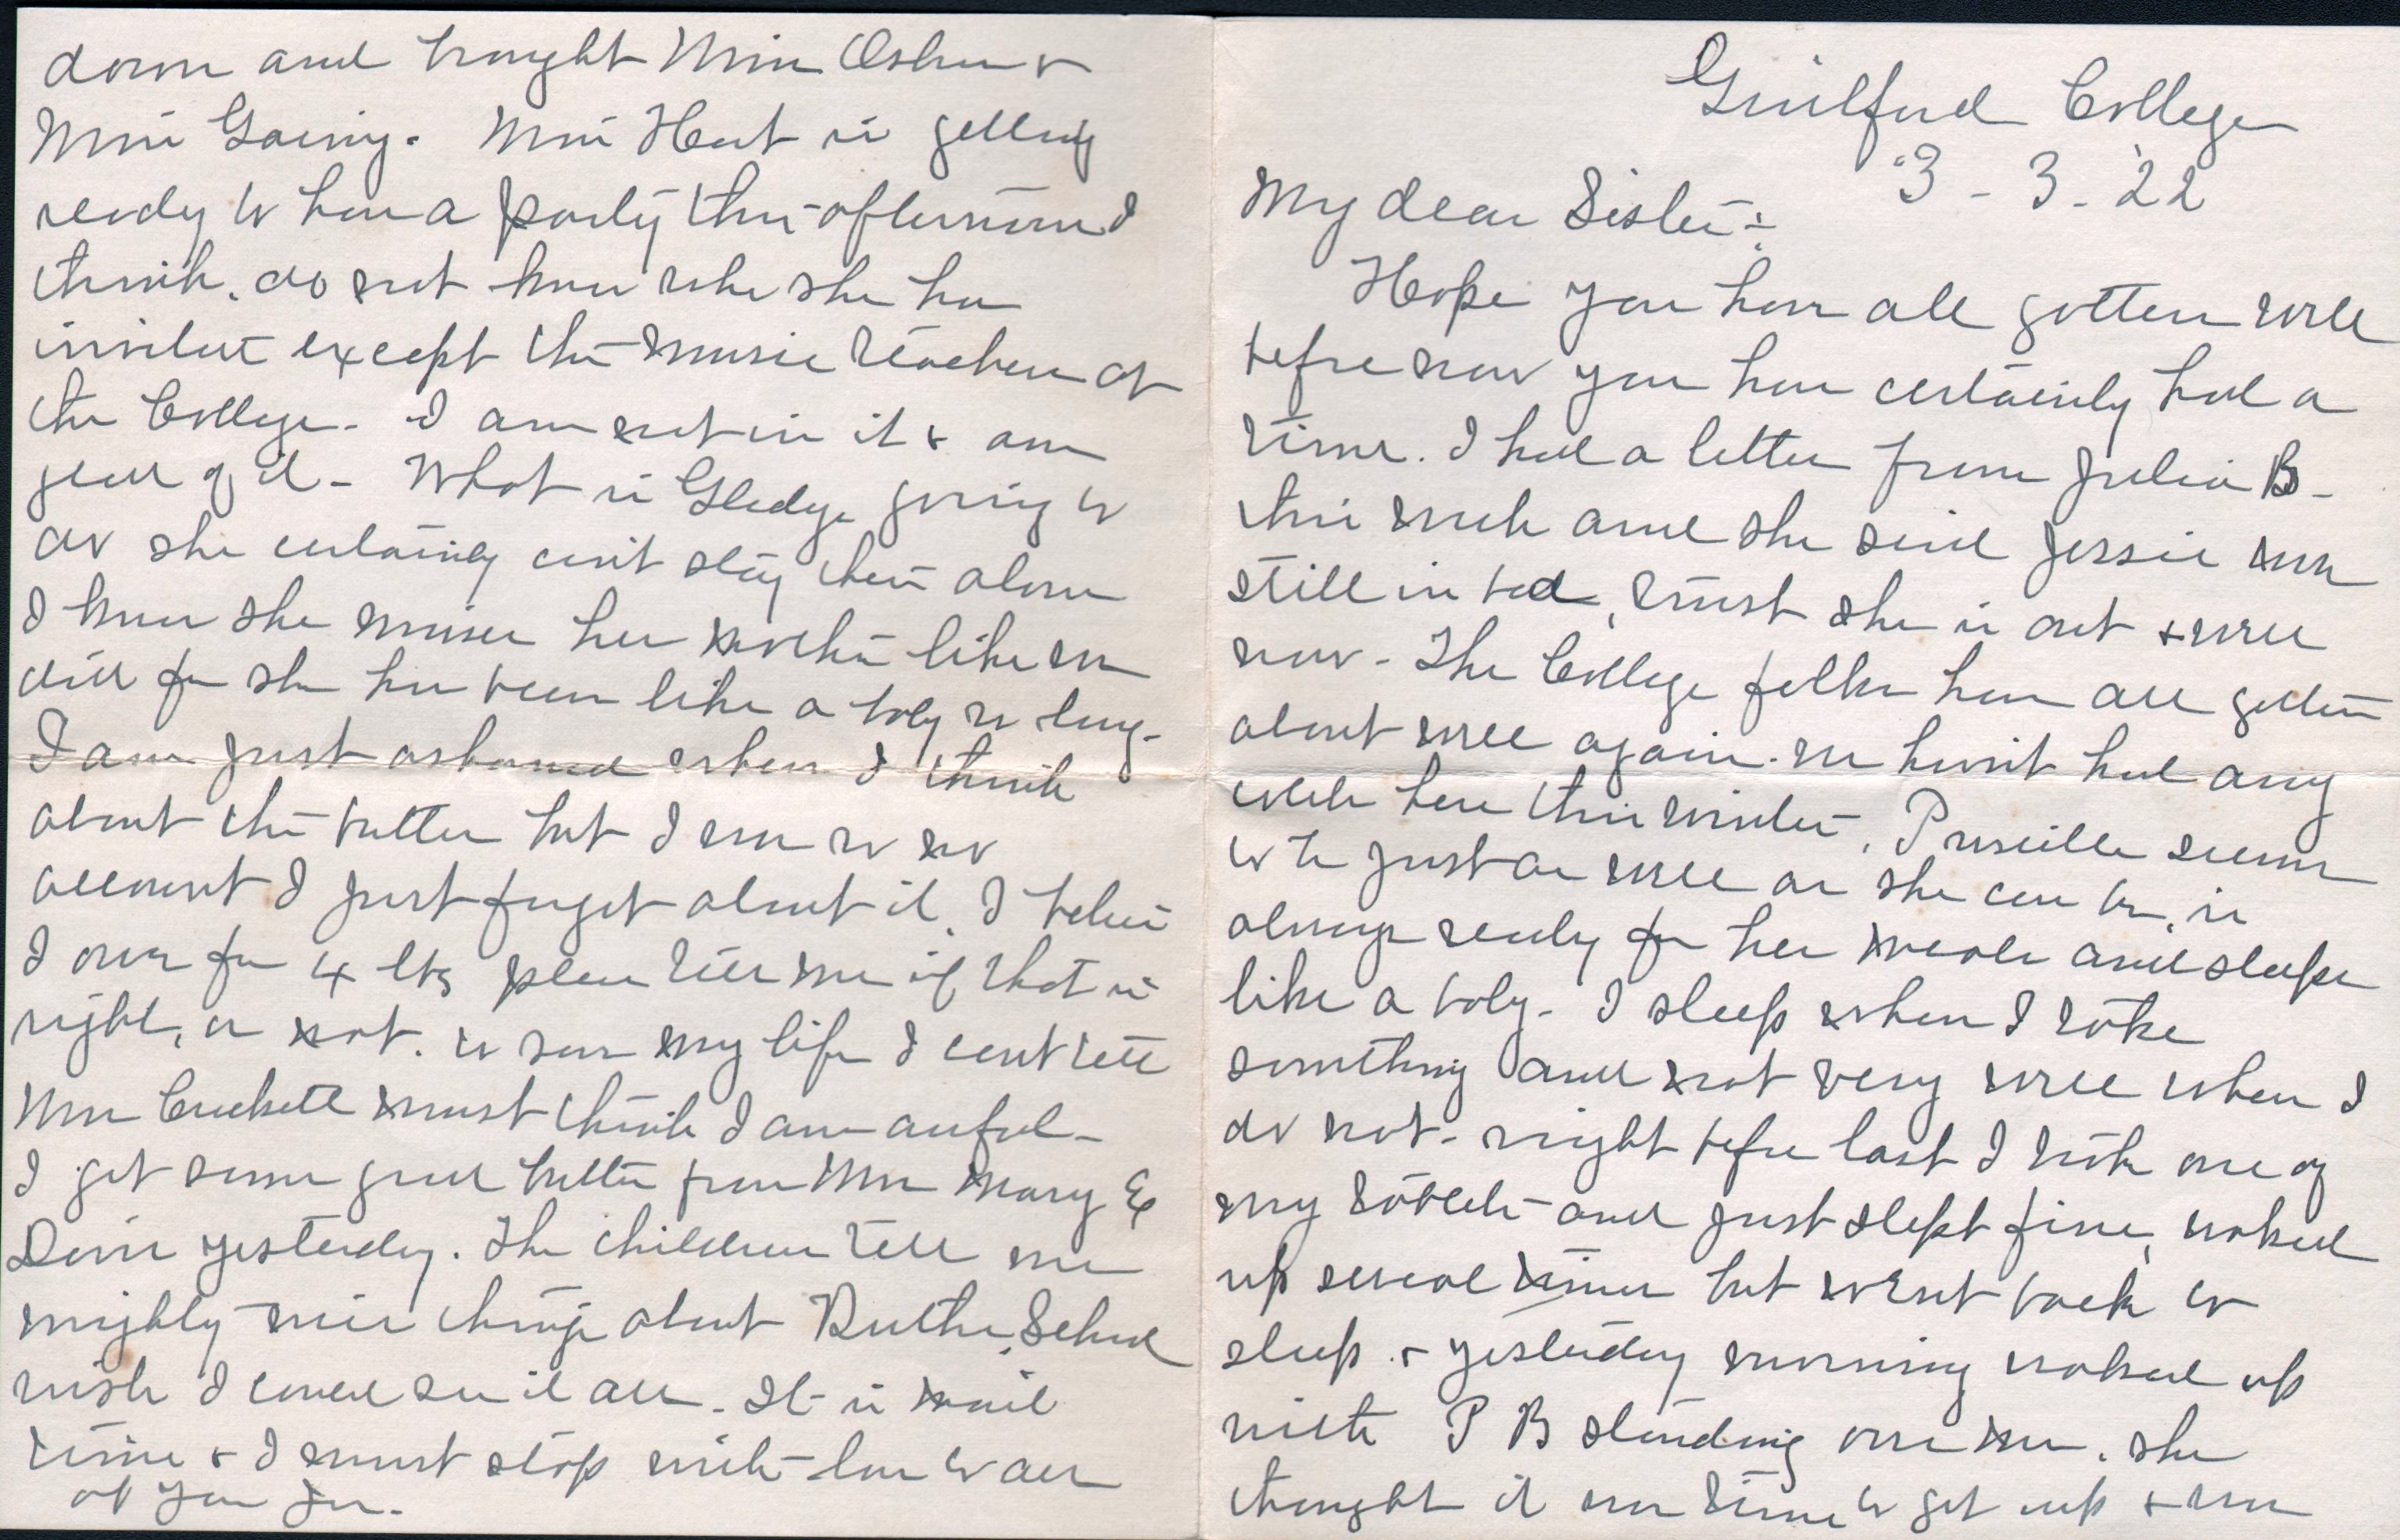 Guilford College
3-3-22
My dear Sister:-
Hope you have all gotten well
before now you have certainly had a
time. I had a letter from Julia B-
this week and she said Jessie was
still in bed, trust she is out & well
now- The College folks have all gotten
about well again. we havn't had any
colds here this winter, Priscilla seems
to be just as well as she can be, is
always ready for her meals and sleeps
like a baby- I sleep when I take
something and not very well when I
do not- night before last I took one of
my tablets and just slept fine, waked
up several times but went back to
sleep. & yesterday morning waked up
with P B standing over me. she
thought it was time to get up & was
down and brought Miss Osborne &
Miss Gainey. Miss Hunt is getting
ready to have a party this afternoon I
think, do not know who she has
invited except the music teachers at
the College- I am not in it & am
glad of it- What is Gladys going to
do she certainly can't stay there alone
I know she misses her mother like we
did for she has been like a baby so long-
I am just ashamed when I think
about the butter but I am so no
account I just forget about it. I believe
I owe for 4 lbs please tell me if that is
right, or not. to save my life I cant tell
Mrs Crickett must think I am awful-
I get some good butter from Mrs Mary E
Davis yesterday. The children tell me
mighty nice things about Ruth's School
wish I could see it all. It is mail
time & I must stop with love to all
of you Jen.